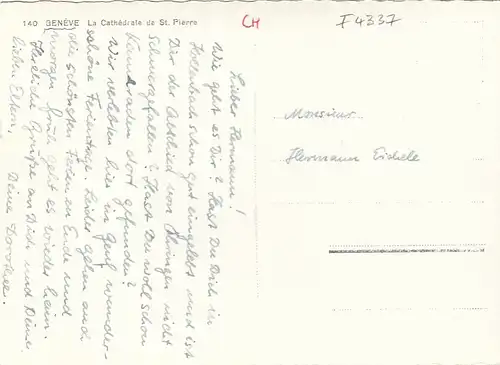 140 GENÈVE La Cathédrale de St. Pierre
CH
F4337
Lieber Hermann!
Wie geht es Dir? Hast Du Dich in
schon gut eingelebt und ist
Dir der Abschied von Öhringen nicht
schwergefallen? Hast Du wohl schon
Kameraden dort gefunden?
Wir verlebten hier in Genf wunder-
schöne Ferientage. Leider gehen auch
die schönsten Ferien zu Ende und
morgen früh geht es wieder heim.
Herzliche Grüße an Dich und Deine
lieben Eltern.
Deine Dorothee.
Monsieur
Hermann Eichele